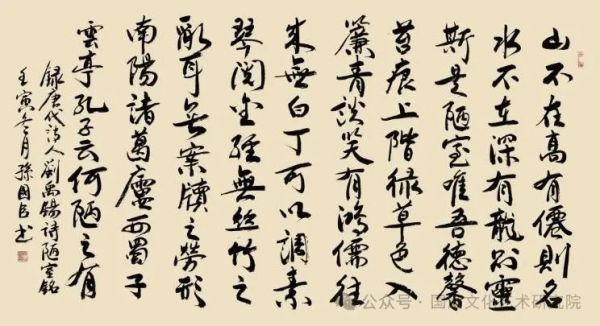 山不在高有僊則名
水不在深有龍則靈
斯是陋室唯吾德馨
苔痕上階緑草色入
簾青談笑有鴻儒往
来無白丁可以調素
琴閲金經無絲竹之
亂耳無案牘之勞形
南陽諸葛廬西蜀子
雲亭孔子云何陋之有
録唐代詩人劉禹錫詩陋室銘
壬寅冬月孫国臣书
公众号 · 国 文化艺术研究院